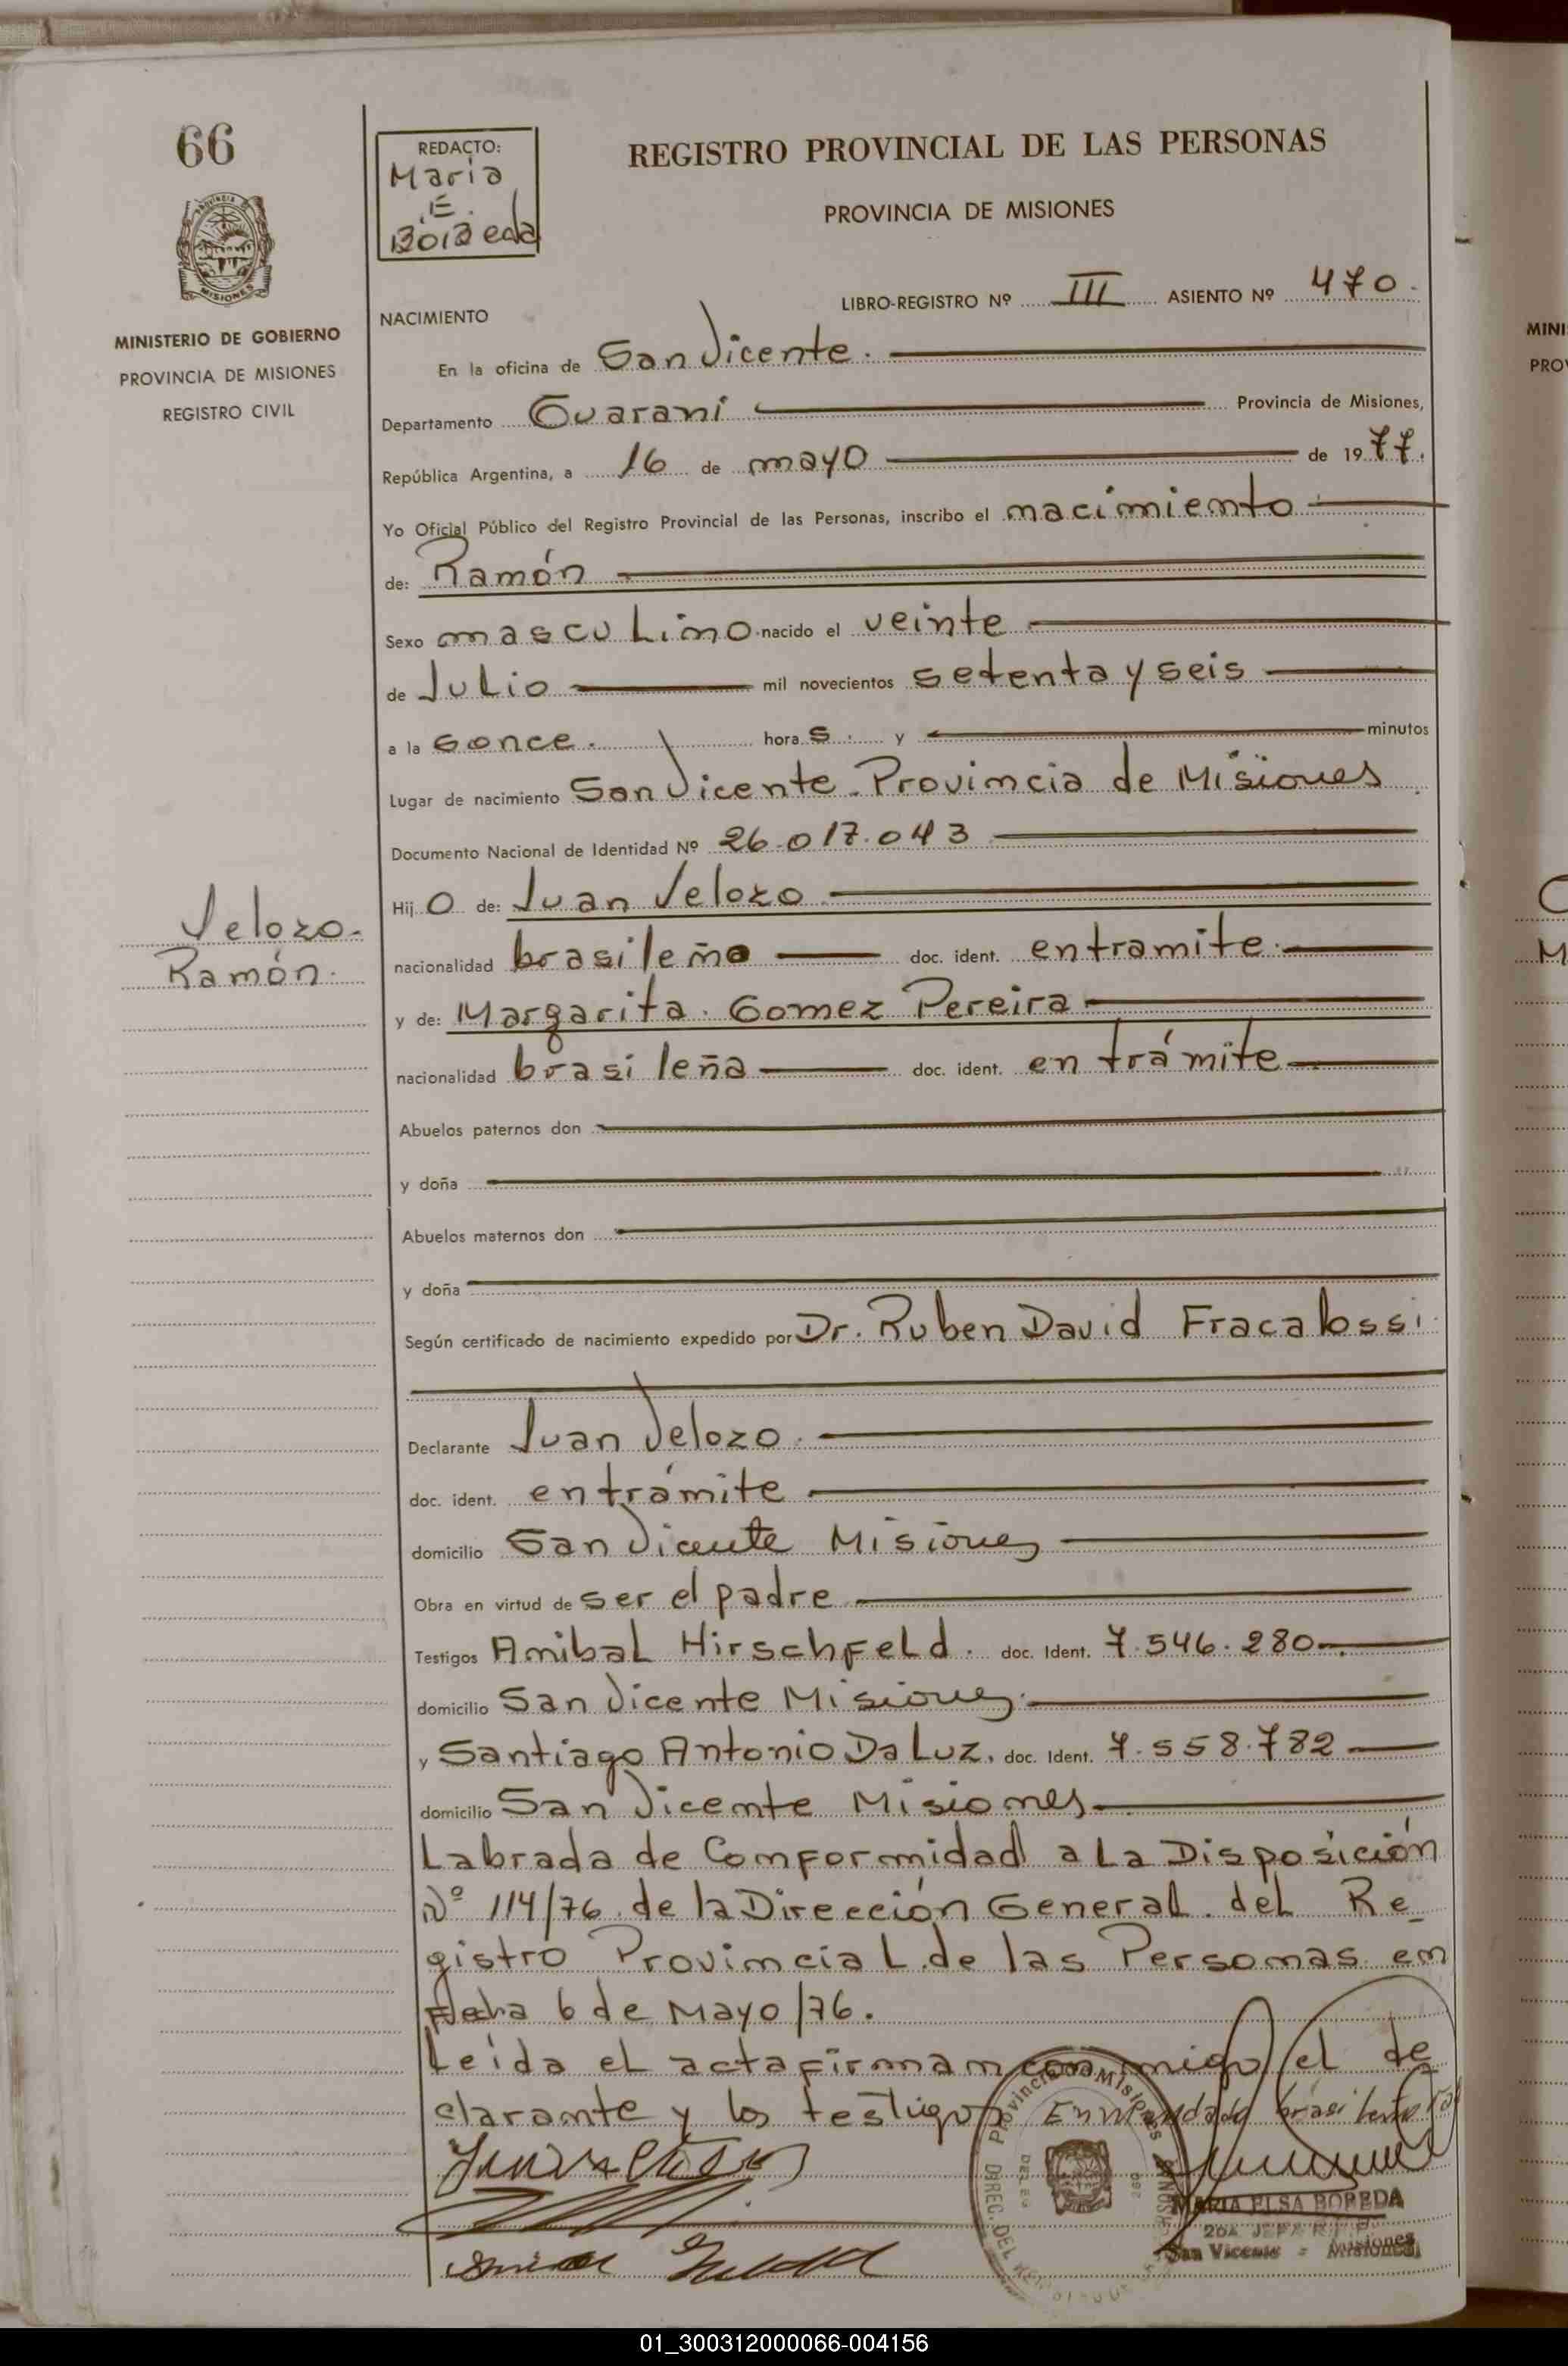 66
REDACTO:
Maria
E.
Bobeda
REGISTRO PROVINCIAL DE LAS PERSONAS
PROVINCIA DE MISIONES
MISIONES
MINISTERIO DE GOBIERNO
PROVINCIA DE MISIONES
REGISTRO CIVIL
LIBRO-REGISTRO Nº III ASIENTO Nº 470.
NACIMIENTO
En la oficina de San Vicente.
Departamento Guaraní Provincia de Misiones,
República Argentina, a 16 de mayo de 1977.
Yo Oficial Público del Registro Provincial de las Personas, inscribo el nacimiento
de: Ramón
Sexo masculino nacido el veinte
de Julio mil novecientos setenta y seis
a la s once. hora s. y minutos
Lugar de nacimiento San Vicente. Provincia de Misiones
Documento Nacional de Identidad Nº 26.017.043
Hij o de: Juan Velozo
Velozo.
Ramón.
nacionalidad brasileño doc. ident. entramite.
y de: Margarita. Gomez Pereira
nacionalidad brasileña doc. ident. en trámite
Abuelos paternos don
y doña
Abuelos maternos don
y doña
Según certificado de nacimiento expedido por Dr. Ruben David Fracalossi.
Declarante Juan Velozo.
doc. ident. entrámite
domicilio San Vicente Misiones
Obra en virtud de ser el padre
Testigos Anibal Hirschfeld. doc. Ident. 7.546.280
domicilio San Vicente Misiones.
y Santiago Antonio Da Luz. doc. Ident. 7.558.782
domicilio San Vicente Misiones
Labrada de Conformidad a La Disposición
Nº 114/76 de la Dirección General. del Re_
gistro Provincial de las Personas en
Fecha 6 de Mayo/76.
Leída el acta firman conmigo el de
clarante y los testigos Enmendado brasileño
Provincia de Misiones
DIREC. DEL
MARIA ELSA BOBEDA
2DA JEFA R.P.P.
San Vicente - Misiones
01_300312000066-004156